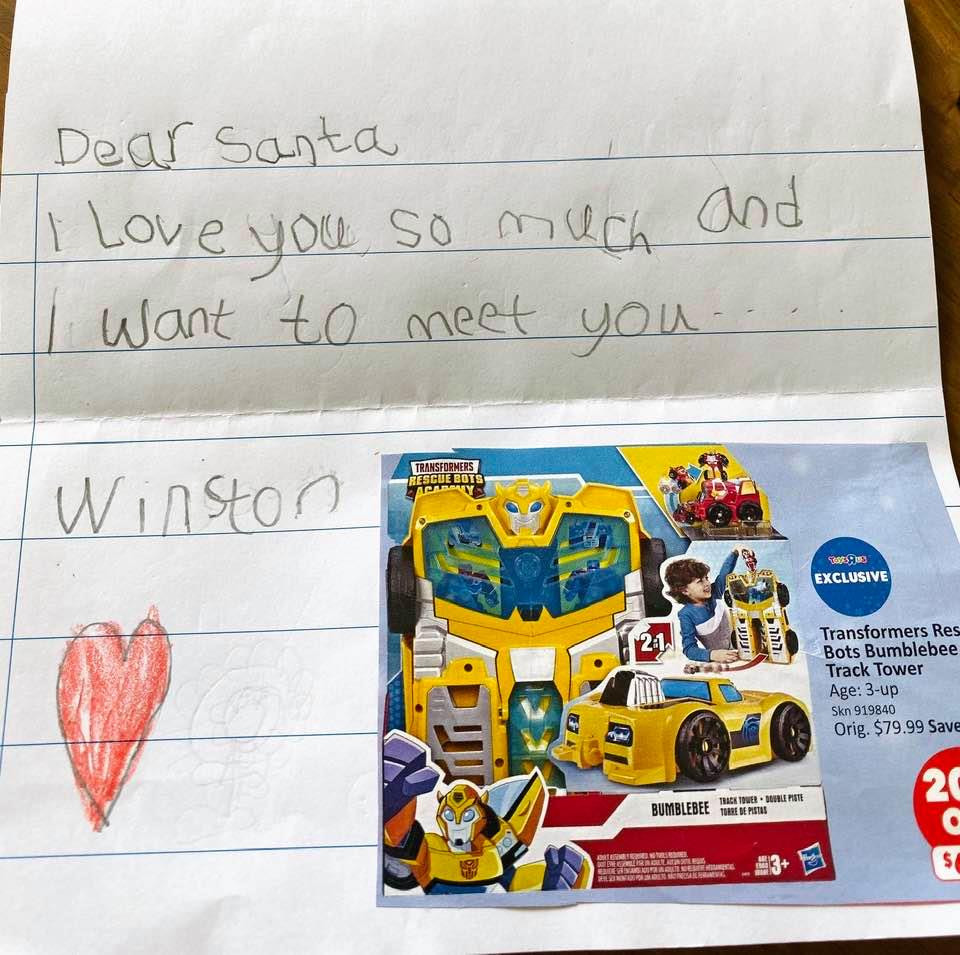 Dear Santa
I Love you so much and
I want to meet you.....
Winston
TRANSFORMERS
RESCUE BOTS
ACADEMY
2in1
ToysЯUs
EXCLUSIVE
Transformers Res
Bots Bumblebee
Track Tower
Age: 3-up
Skn 919840
Orig. $79.99 Save
20
O
$6
BUMBLEBEE
TRACK TOWER • DOUBLE PISTE
TORRE DE PISTAS
ADULT ASSEMBLY REQUIRED. NO TOOLS REQUIRED.
AGE
3+
Hasbro